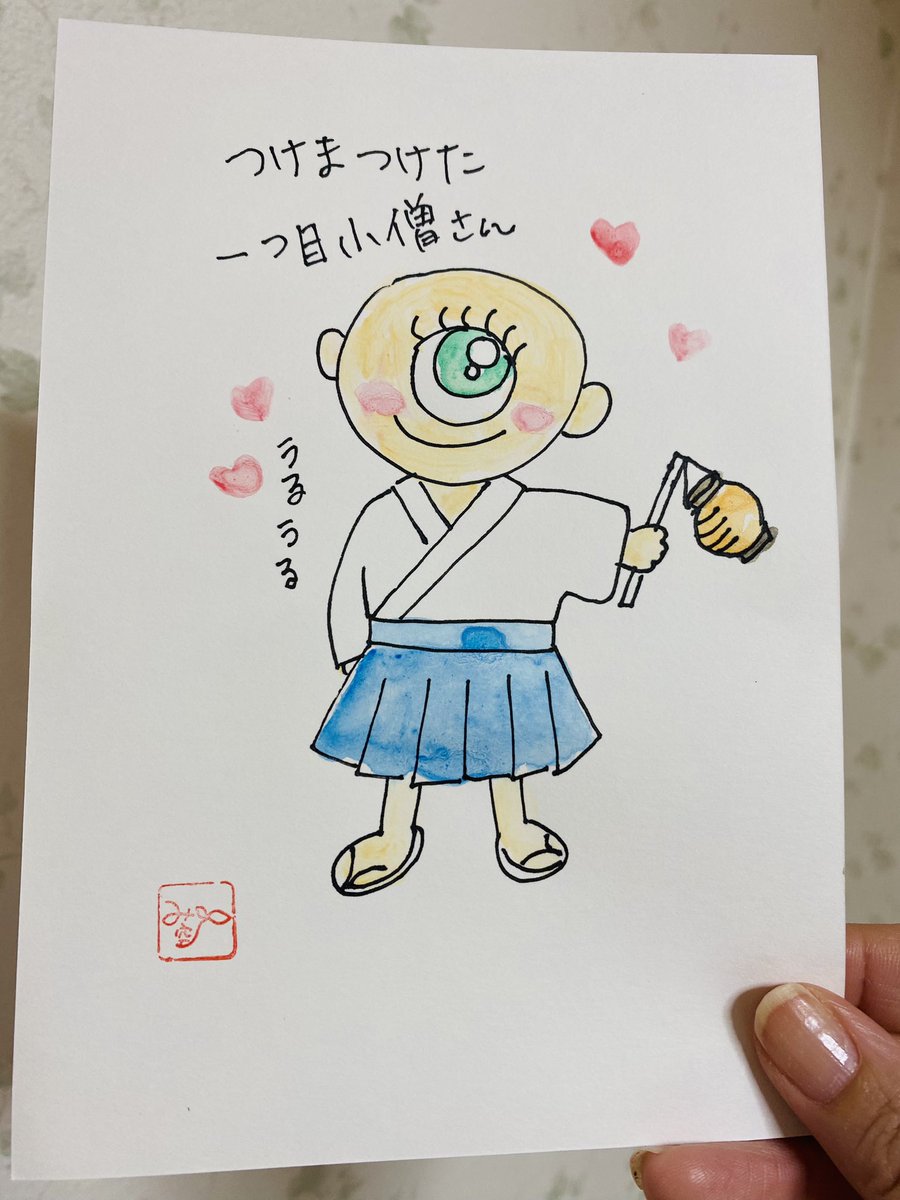 つけまつけた
一つ目小僧さん
うるうる